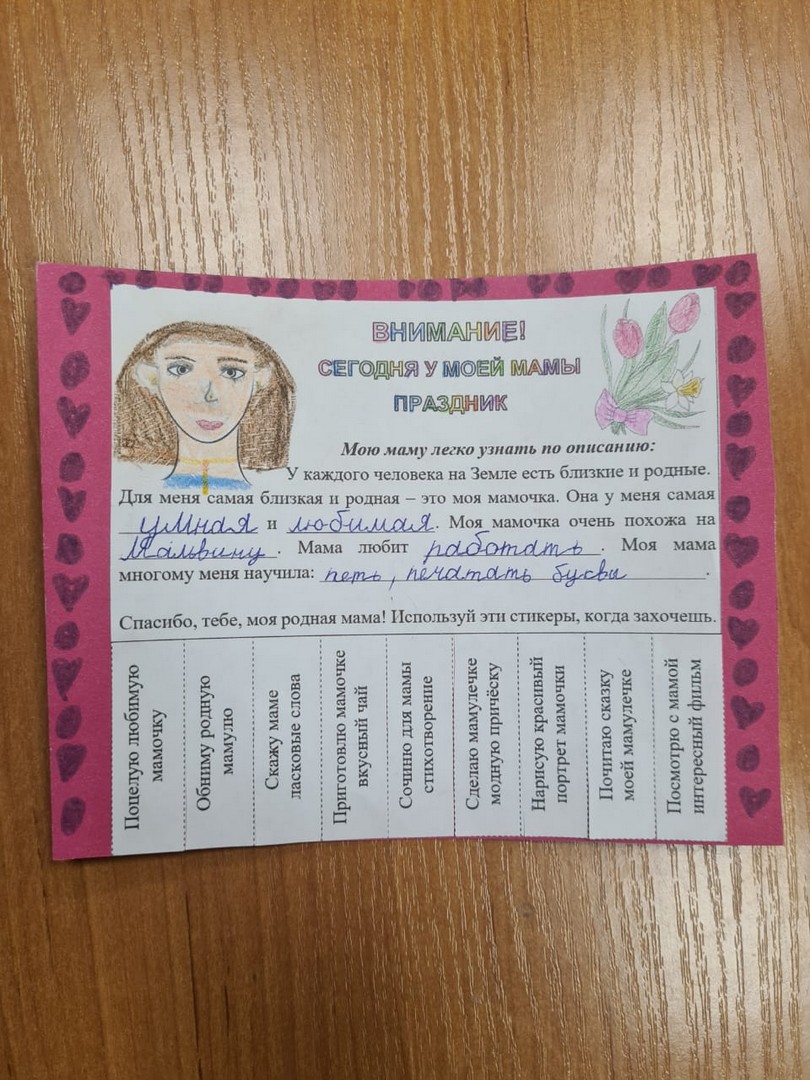 ВНИМАНИЕ!
СЕГОДНЯ У МОЕЙ МАМЫ
ПРАЗДНИК
Мою маму легко узнать по описанию:
У каждого человека на Земле есть близкие и родные.
Для меня самая близкая и родная – это моя мамочка. Она у меня самая
умная и любимая. Моя мамочка очень похожа на
Мальвину. Мама любит работать. Моя мама
многому меня научила: петь, печатать буквы.
Спасибо, тебе, моя родная мама! Используй эти стикеры, когда захочешь.
Поцелую любимую
мамочку
Обниму родную
мамулю
Скажу маме
ласковые слова
Приготовлю мамочке
вкусный чай
Сочиню для мамы
стихотворение
Сделаю мамулечке
модную причёску
Нарисую красивый
портрет мамочки
Почитаю сказку
моей мамулечке
Посмотрю с мамой
интересный фильм